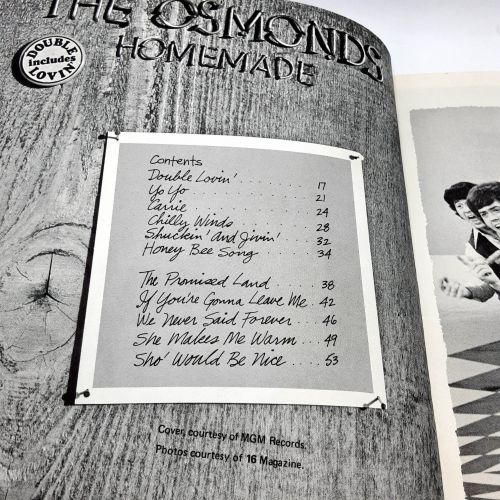 THE OSMONDS
HOMEMADE
DOUBLE
includes
LOVIN'
Contents
Double Lovin' . . . . . . . . 17
Yo Yo . . . . . . . . . . . . 21
Carrie . . . . . . . . . . . 24
Chilly Winds . . . . . . . . 28
Shuckin' And Jivin' . . . . 32
Honey Bee Song . . . . . . . 34
The Promised Land . . . . . 38
If You're Gonna Leave Me . . 42
We Never Said Forever . . . 46
She Makes Me Warm . . . 49
Sho' Would Be Nice . . . . 53
Cover, courtesy of MGM Records.
Photos courtesy of 16 Magazine.